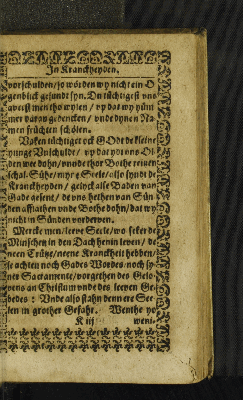 In Kranckheyden.
vorschulden/ so wörden wy nicht ein O-
genblick gesundt syn. Du tüchtigest vns
auerst
mer daran gedencken / vnde dynen Na-
men früchten schölen.
Vaken tüchtiget ock GOdt de kleine
vp dat ydt ens Or-
den wee dohn/ vnnde thor Bothe reitzen
schal. Sühe/ myne Seele/ also synde de
Kranckheyden / gelyck alse Baden van
Gade gesent / de vns hethen van Sün-
den afflathen vnde Bothe dohn/ dat wy
nicht in Sünden vorderuen.
Mercke men/ leeue Seele/ wo seker de
Minschen in den Dach henin leuen / de
neen Crütze/ neene Kranckheit hebben/
se achten noch Gades Wordes/ noch sy-
ner Sacramente/ vorgethen des Gelo-
uens an Christum vnde des leeuen Ge-
bedes : Vnde also stahn denn ere See-
len in grother Gefahr. Wenthe yo
K iij weni-